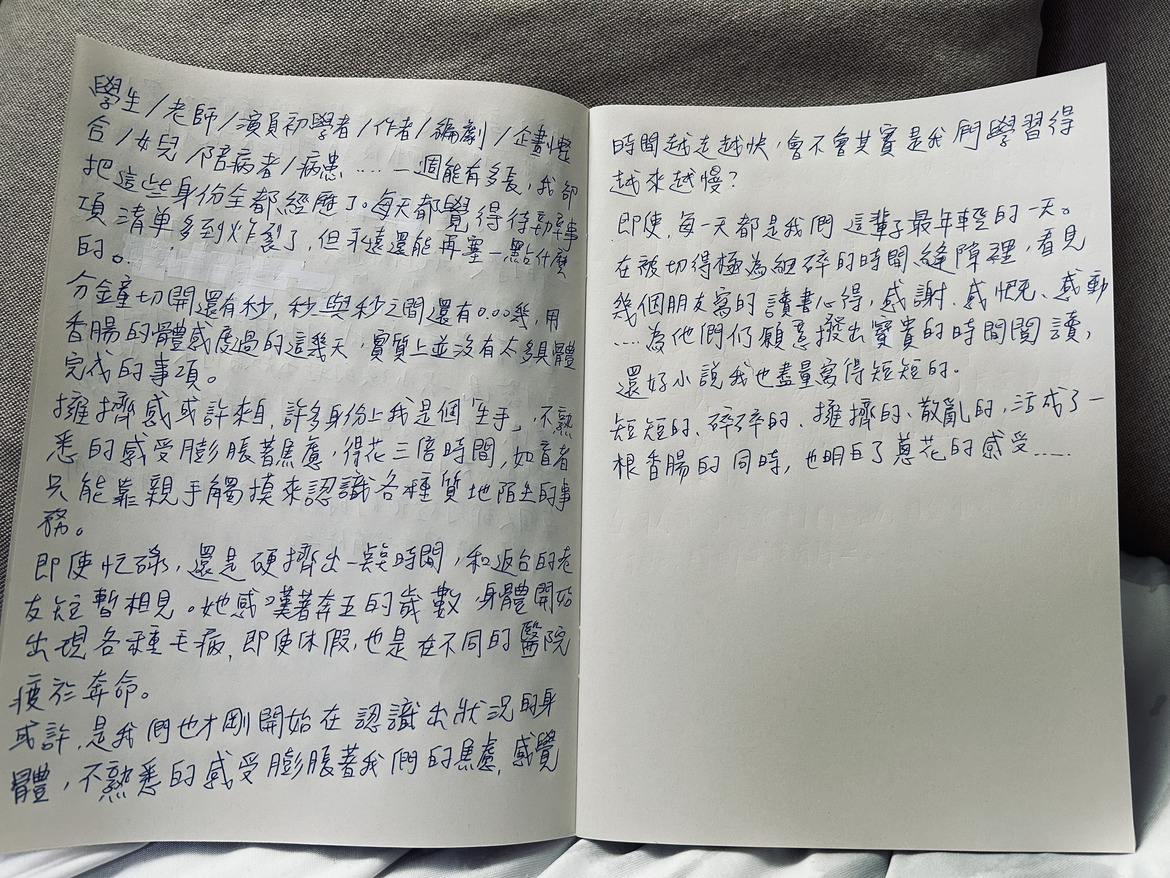 學生/老師/演員初學者/作者/編劇/企畫統
合/女兒/陪病者/病患……一個能有多長，我卻
把這些身份全都經歷了。每天都覺得待辦事
項清單多到炸裂了，但永遠還能再塞一點什麼
的。
分鐘切開還有秒，秒與秒之間還有0.00幾，用
香腸的體感度過的這幾天，實質上並沒有太多具體
完成的事項。
擁擠感或許來自，許多身份上我是個「生手」，不熟
悉的感受膨脹著焦慮，得花三倍時間，如盲者
只能靠親手觸摸來認識各種質地陌生的事
務。
即使忙碌，還是硬擠出一點時間，和返台的老
友短暫相見。她感嘆著奔五的歲數，身體開始
出現各種毛病，即使休假，也是在不同的醫院
疲於奔命。
或許，是我們也才剛開始在認識出狀況的身
體，不熟悉的感受膨脹著我們的焦慮，感覺
時間越走越快，會不會其實是我們學習得
越來越慢？
即使，每一天都是我們這輩子最年輕的一天。
在被切得極為細碎的時間縫隙裡，看見
幾個朋友寫的讀書心得，感謝、感慨、感動
……為他們仍願意撥出寶貴的時間閱讀，
還好小說我也盡量寫得短短的。
短短的、碎碎的、擁擠的、散亂的，活成了一
根香腸的同時，也明白了蔥花的感受……